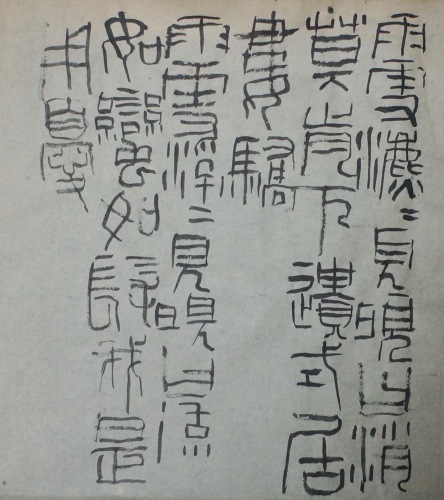 雨雪瀌〻見晛曰消
莫肯下遺式居
婁驕
雨雪浮〻見晛曰流
如蠻如髦我是
用憂